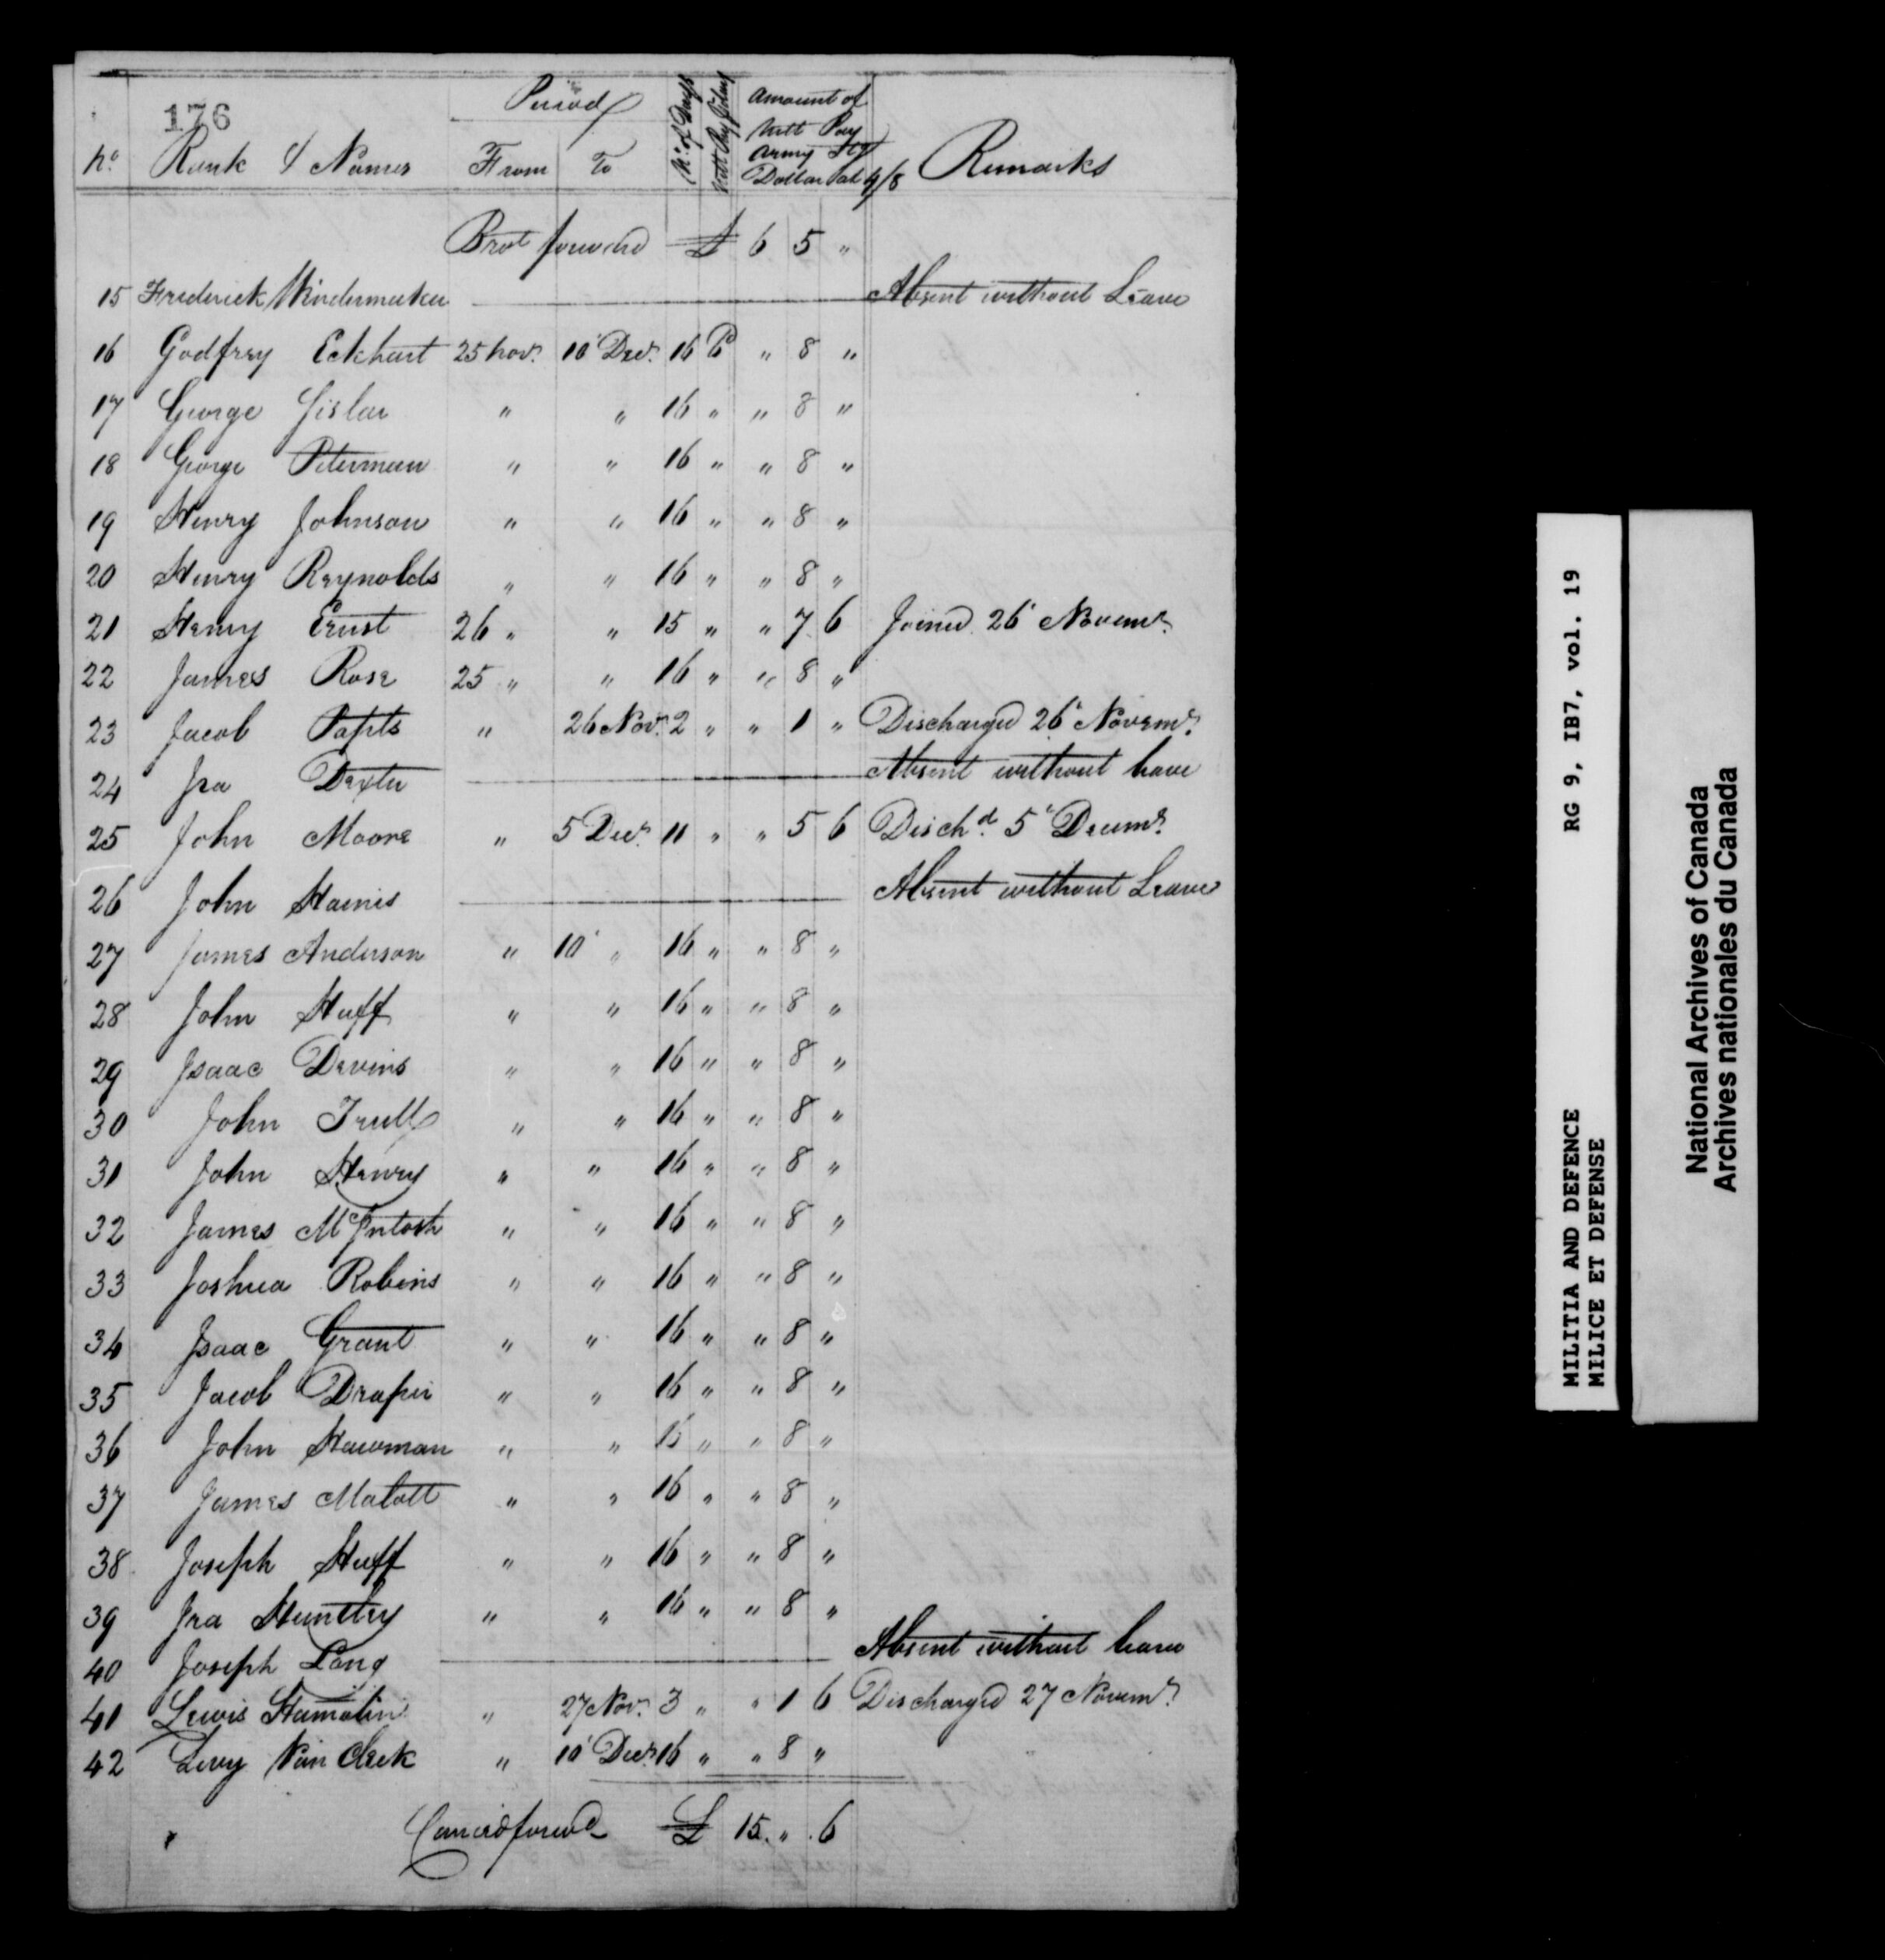 176
No. Rank & Names Period From To No. of Days Nett Pay P. day Amount of Nett Pay Army Stg Dollar at 4/8 Remarks
Brot forward £ 6 5 "
15 Frederick Windermaker Absent without Leave
16 Godfrey Eckhart 25 Nov. 10 Decr. 16 6 " 8 "
17 George Gislar " " 16 " " 8 "
18 George Peterman " " 16 " " 8 "
19 Henry Johnson " " 16 " " 8 "
20 Henry Reynolds " " 16 " " 8 "
21 Henry Ernst 26 " " 15 " " 7 6 Joined 26 Novemr.
22 James Rose 25 " " 16 " " 8 "
23 Jacob " 26 Nov. 2 " " 1 " Discharged 26 Novemr.
24 Ira Dexter Absent without leave
25 John Moore " 5 Decr. 11 " " 5 6 Dischd. 5 Decemr.
26 John Hainis Absent without Leave
27 James Anderson " 10 " 16 " " 8 "
28 John Huff " " 16 " " 8 "
29 Isaac Devins " " 16 " " 8 "
30 John Trull " " 16 " " 8 "
31 John Henry " " 16 " " 8 "
32 James McIntosh " " 16 " " 8 "
33 Joshua Robins " " 16 " " 8 "
34 Isaac Grant " " 16 " " 8 "
35 Jacob Draper " " 16 " " 8 "
36 John Hawman " " 16 " " 8 "
37 James Malott " " 16 " " 8 "
38 Joseph Huff " " 16 " " 8 "
39 Ira Huntley " " 16 " " 8 "
40 Joseph Long Absent without leave
41 Lewis Hamalin " 27 Nov. 3 " " 1 6 Discharged 27 Novemr.
42 Levy Van Cleek " 10 Decr. 16 " " 8 "
Carried forwd £ 15 " 6
MILITIA AND DEFENCE RG 9, IB7, vol. 19
MILICE ET DEFENSE
National Archives of Canada
Archives nationales du Canada